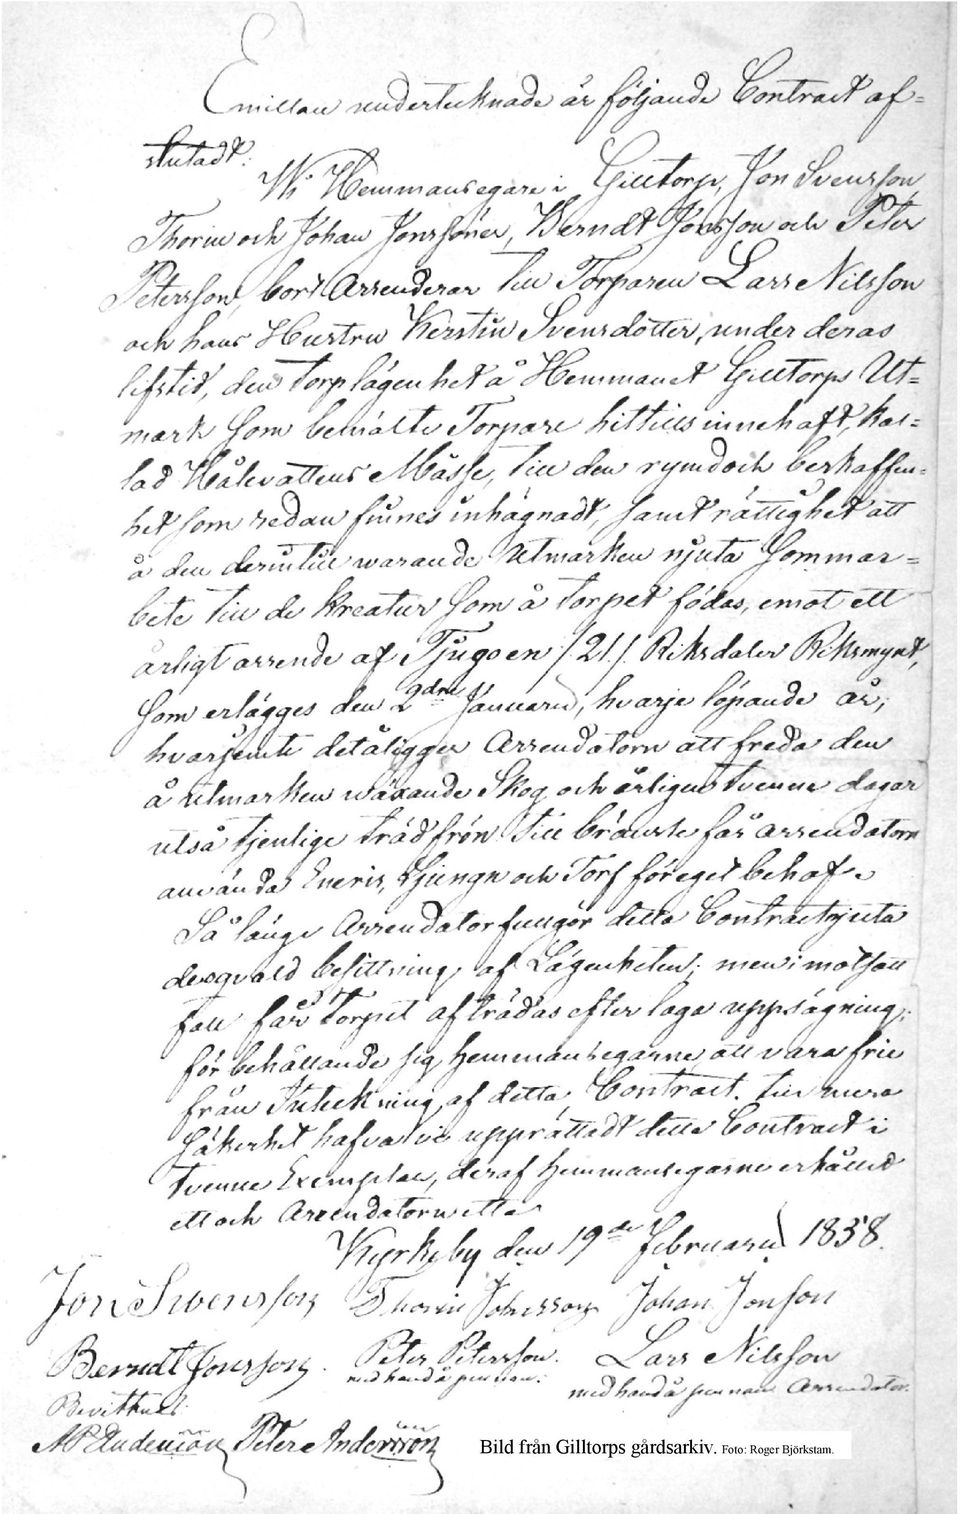 Emillan undertecknade är följande Contract af=
slutadt:
Wi Hemmansegare i Gilltorp, Jon Svensson
Thorin och Johan Jonssöner, Berndt Jonsson och Peter
Petersson, bort Arrenderar till Torparen Lars Nilsson
och hans Hustru Kerstin Svensdotter, under deras
lifstid, den torplägenhet å Hemmanet Gilltorps Ut=
mark som bemälte Torpare hittills innehaft, kal=
lad Hålevattens Måsse, till den rymd och beskaffen=
het som redan finnes inhägnadt, samt rättighet att
å den dermtill warande Utmarken njuta Sommar=
bete till de kreatur som å torpet födas, emot ett
årligt arrende af Tjugoen /21./. Riksdaler Riksmynt,
som erlägges den 2dra Januarii, hvarje löpande år,
hvarjemte det åligger Arrendatorn att freda den
å utmarken wäxande Skog och årligen tvenne dagar
utså tjenlige trädfrön. Till bränsle får arrendatorn
använda Eneris, Ljungn och Torf för eget behof.
Så länge Arrendator fullgör detta Contract njuta
de oqvald besittning af Lägenheten; men i motsatt
fall får Torpet afträdas efter laga uppsägning;
förbehållande sig hemmansegarne att vara frie
från Inteckning af detta Contract. till mera
säkerhet hafva vi upprättadt detta Contract i
tvenne Exemplar, deraf hemmansegarne erhållit
ett och Arrendatorn ett.
Kyrkeby den 19de Februarii 1858.
Jon Swensson Thorin Johnsson Johan Jonson
Berndt Jonsson. Peter Petersson. Lars Nilsson
med hand å pennan: med hand å pennan Arrendator.
Bevittnas:
Peter Anderson
Bild från Gilltorps gårdsarkiv. Foto: Roger Björkstam.